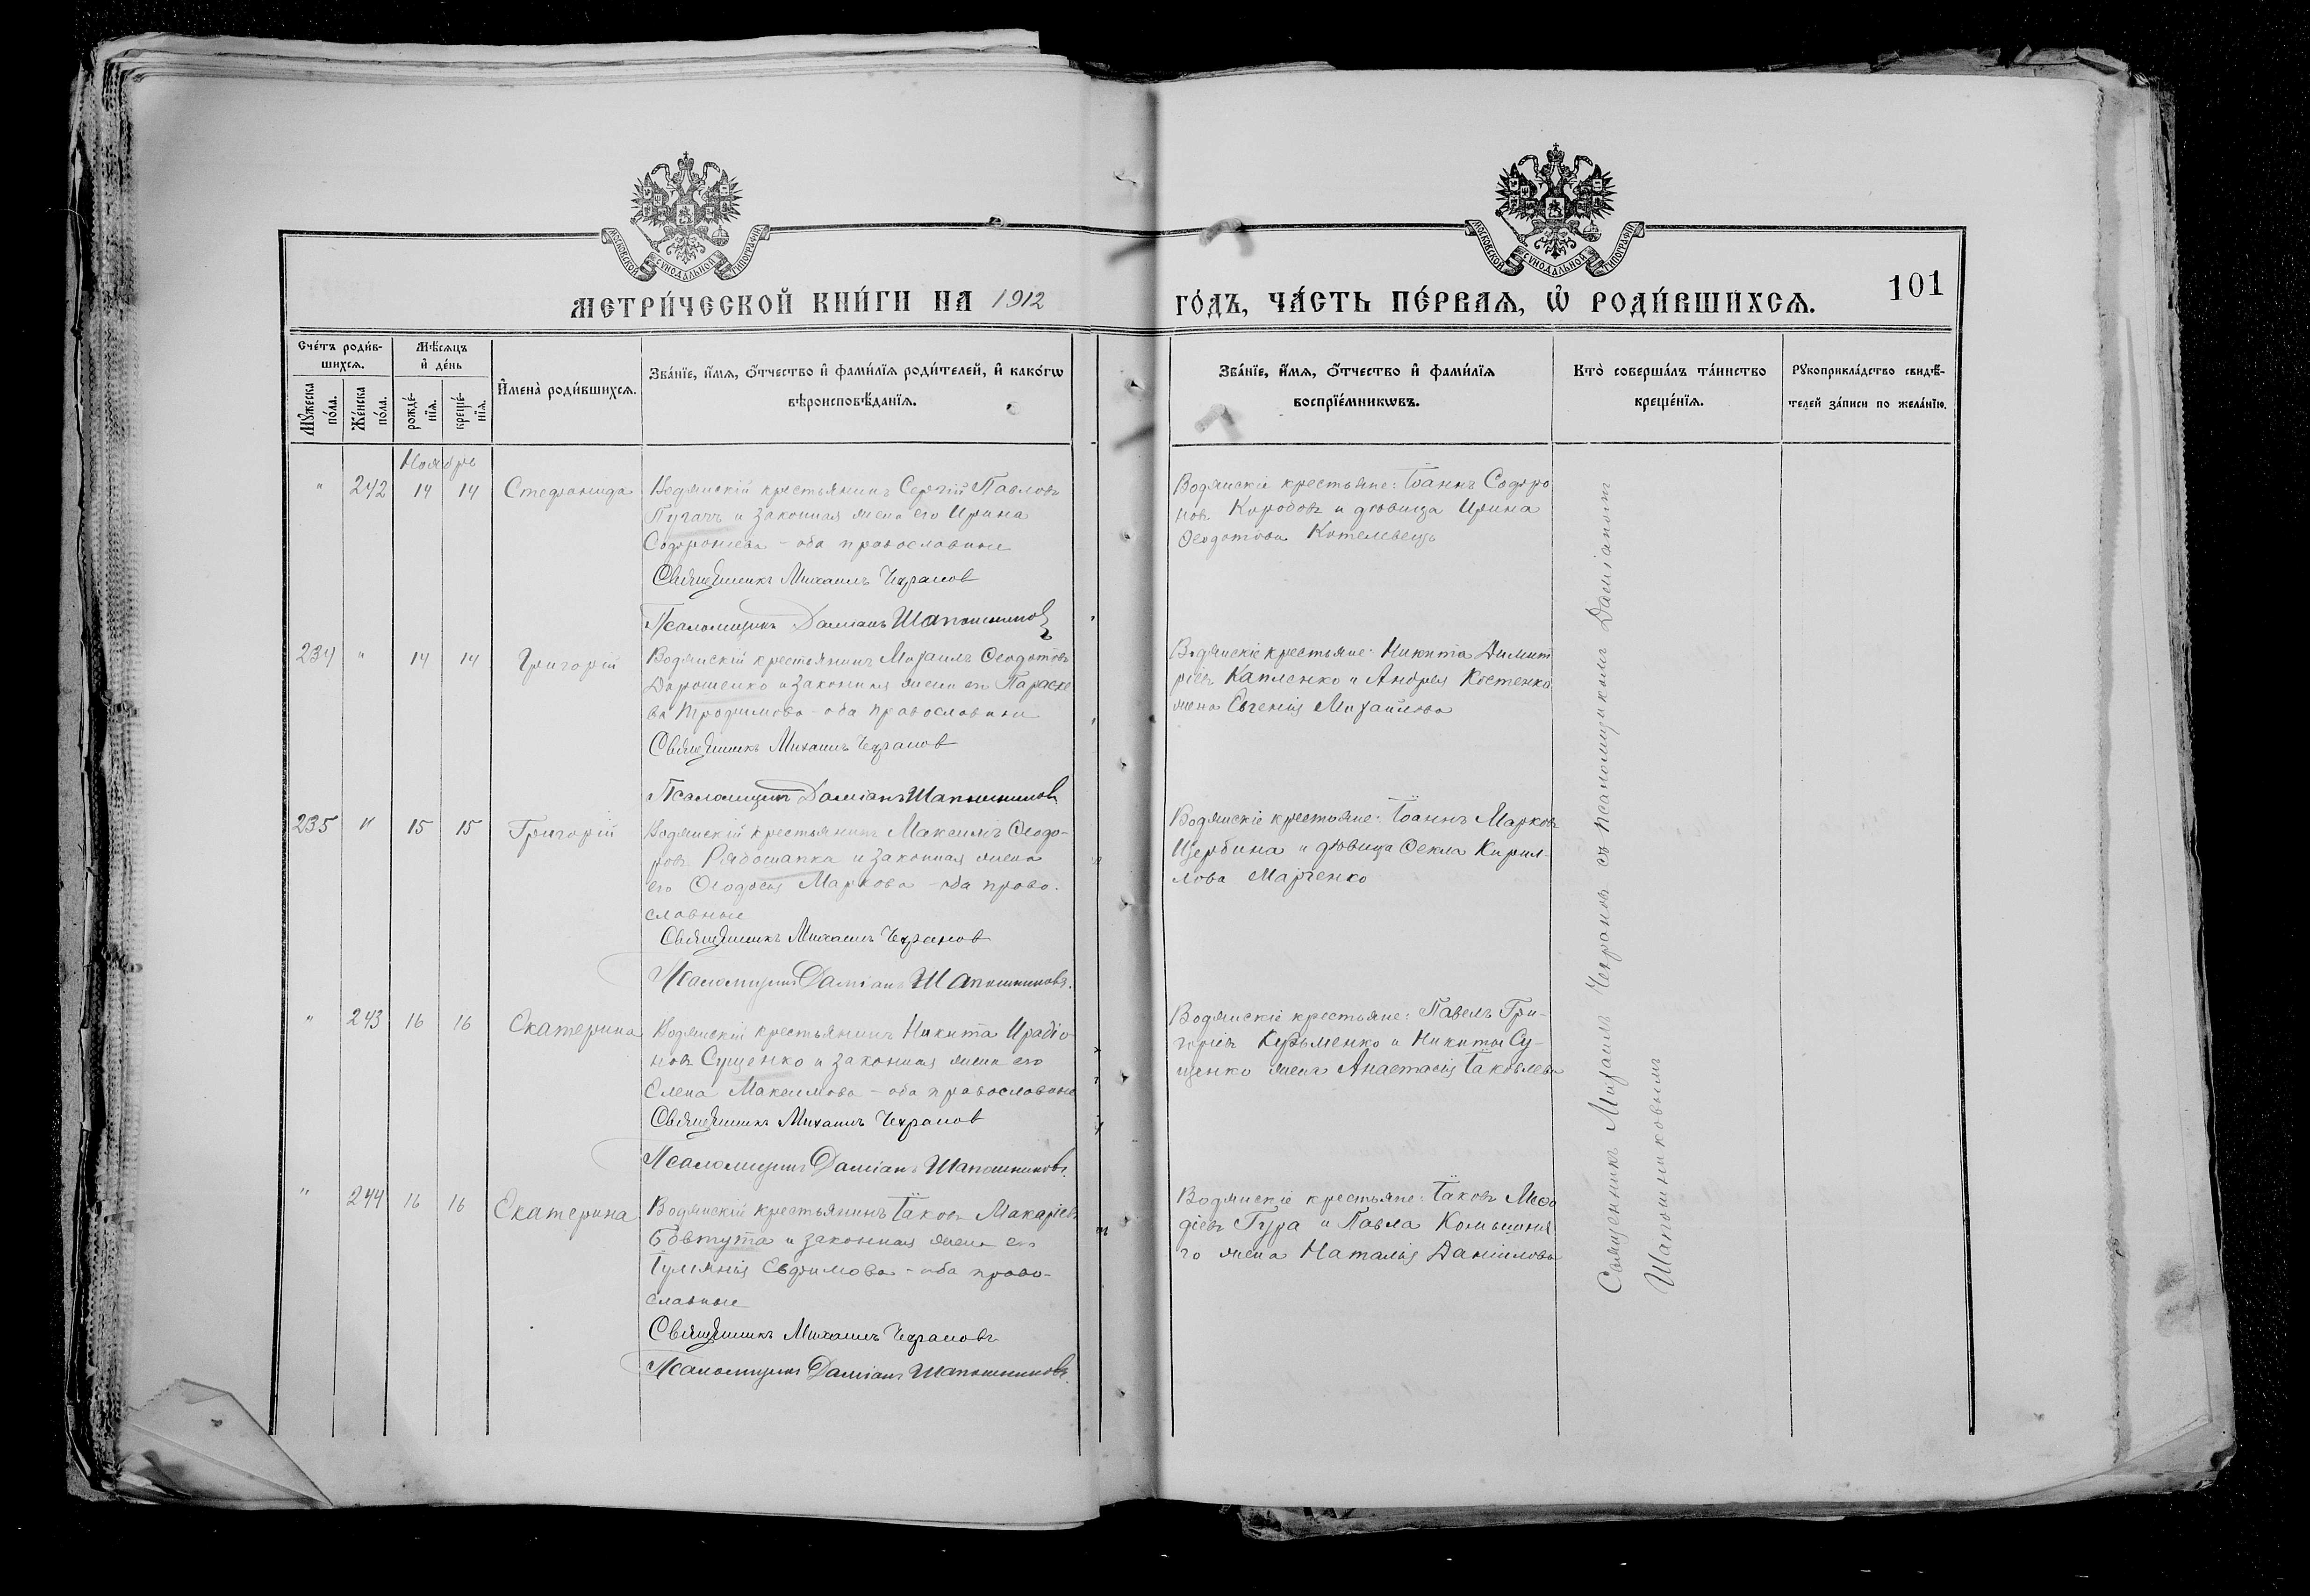 МОСКОВСКОЙ СѴНОДАЛЬНОЙ ТИПОГРАФІИ
МОСКОВСКОЙ СѴНОДАЛЬНОЙ ТИПОГРАФІИ
МЕТРИ́ЧЕСКОЙ КНИ́ГИ НА 1912
ГО́ДЪ, ЧА́СТЬ ПЕ́РВАѦ, Ѡ҆ РОДИ́ВШИХСѦ.
101
Сче́тъ роди́в-
шихсѧ.
Мꙋ́жеска
по́ла.
Же́нска
по́ла.
Мѣ́сѧцъ
и҆ де́нь
рожде́-
нїѧ.
креще́-
нїѧ.
И҆мена̀ роди́вшихсѧ.
Зва́нїе, и҆́мѧ, о҆́тчество и҆ фами́лїѧ роди́телей, и҆ како́гѡ
вѣроисповѣ́данїѧ.
Зва́нїе, и҆́мѧ, о҆́тчество и҆ фами́лїѧ
воспрїе́мникѡвъ.
Кто̀ соверша́лъ та́инство
креще́нїѧ.
Рꙋкоприкла́дство свидѣ́-
телей за́писи по жела́нїю.
Ноябрь
" 242 14 14 Стефанида
Водянскій крестьянинъ Сергій Павловъ
Пугачъ и законная жена его Ирина
Софроніева - оба православные
Священникъ Михаилъ Чехрановъ
Псаломщикъ Даміанъ Шапошниковъ
Водянскіе крестьяне: Іоаннъ Софро
новъ Коробовъ и дѣвица Ирина
Ѳеодотова Котелевецъ
234 " 14 14 Григорій
Водянскій крестьянинъ Михаилъ Ѳеодотовъ
Дорошенко и законная жена его Параске
ва Трофимова - оба православные
Священникъ Михаилъ Чехрановъ
Псаломщикъ Даміанъ Шапошниковъ
Водянскіе крестьяне: Никита Димит
ріевъ Капленко и Андрея Костенко
жена Евгенія Михайлова
235 " 15 15 Григорій
Водянскій крестьянинъ Максимъ Ѳеодо-
ровъ Рябошапка и законная жена
его Ѳеодосія Маркова - оба право-
славные
Священникъ Михаилъ Чехрановъ
Псаломщикъ Даміанъ Шапошниковъ.
Водянскіе крестьяне: Іоаннъ Марковъ
Щербина и дѣвица Ѳекла Кирил-
лова Марченко
" 243 16 16 Екатерина
Водянскій крестьянинъ Никита Ирадіо-
новъ Сущенко и законная жена его
Елена Максимова - оба православные
Священникъ Михаилъ Чехрановъ
Псаломщикъ Даміанъ Шапошниковъ.
Водянскіе крестьяне: Павелъ Гри-
горіевъ Кузьменко и Никиты Су-
щенко жена Анастасія Іаковлева
" 244 16 16 Екатерина
Водянскій крестьянинъ Іаковъ Макаріевъ
Бовтута и законная жена его
Іуліанія Евфимова - оба право-
славные
Священникъ Михаилъ Чехрановъ
Псаломщикъ Даміанъ Шапошниковъ.
Водянскіе крестьяне: Іаковъ Меѳо
діевъ Гура и Павла
го жена Наталія Даніилова
Священникъ Михаилъ Чехрановъ съ псаломщикомъ Даміаномъ
Шапошниковымъ